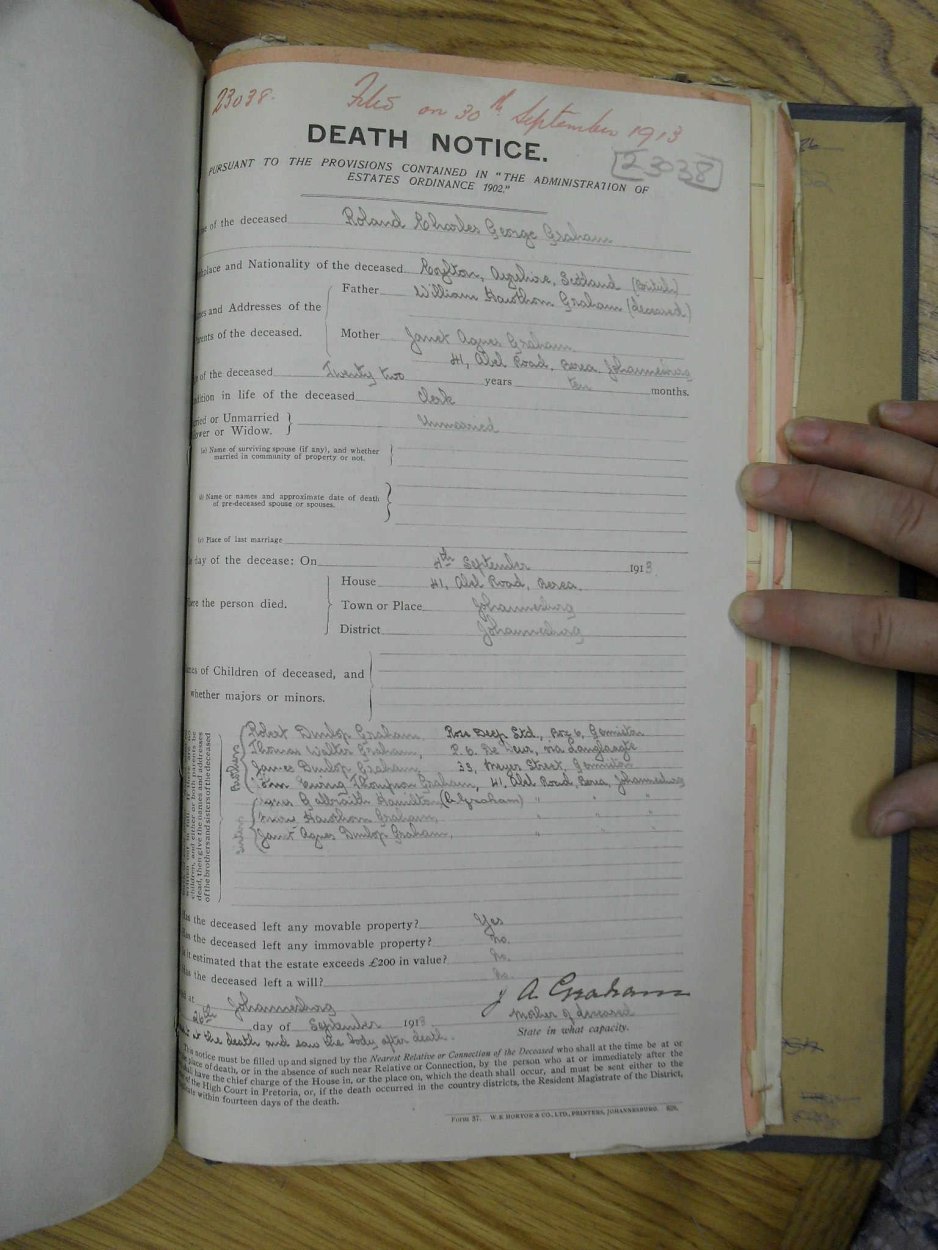 23038. Filed on 30th September 1913
DEATH NOTICE.
23038
PURSUANT TO THE PROVISIONS CONTAINED IN "THE ADMINISTRATION OF
ESTATES ORDINANCE 1902."
of the deceased Roland Charles George Graham
place and Nationality of the deceased Coylton, Ayrshire, Scotland (British)
Father William Hawthorn Graham (deceased)
and Addresses of the
Parents of the deceased.
Mother Janet Agnes Graham
41, Abel Road, Berea Johannesburg
of the deceased Twenty two years ten months.
Condition in life of the deceased Clerk
Married or Unmarried
Widower or Widow. Unmarried
(a) Name of surviving spouse (if any), and whether
married in community of property or not.
(b) Name or names and approximate date of death
of pre-deceased spouse or spouses.
(c) Place of last marriage
day of the decease: On 4th September 1913
House 41, Abel Road, Berea
Where the person died. Town or Place Johannesburg
District Johannesburg
Names of Children of deceased, and
whether majors or minors.
children, and either or both parents be
dead, then give the names and addresses
of the brothers and sisters of the deceased
Brothers
Robert Dunlop Graham Rose Deep Ltd, Box 6, Germiston
Thomas Walter Graham, P.O. via Langlaagte
James Dunlop Graham 33, Meyer Street, Germiston
Ewing Thompson Graham, 41, Abel Road, Berea, Johannesburg
Sisters
Galbraith Hamilton (b. Graham) " " "
Hawthorn Graham, " " "
Janet Agnes Dunlop Graham, " " "
Has the deceased left any movable property? Yes
Has the deceased left any immovable property? No.
Is it estimated that the estate exceeds £200 in value? No.
Has the deceased left a will? No.
at Johannesburg
J A Graham
26th day of September 1913
Mother of deceased
State in what capacity.
at the death and saw the body after death.
The notice must be filled up and signed by the Nearest Relative or Connection of the Deceased who shall at the time be at or
place of death, or in the absence of such near Relative or Connection, by the person who at or immediately after the
shall have the chief charge of the House in, or the place on, which the death shall occur, and must be sent either to the
of the High Court in Pretoria, or, if the death occurred in the country districts, the Resident Magistrate of the District,
within fourteen days of the death.
Form 37. W. E HORTOR & CO., LTD., PRINTERS, JOHANNESBURG.